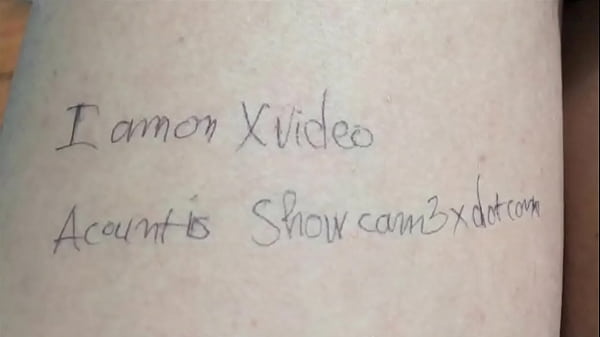 I am on Xvideo
Acount is Show cam3xdotcom